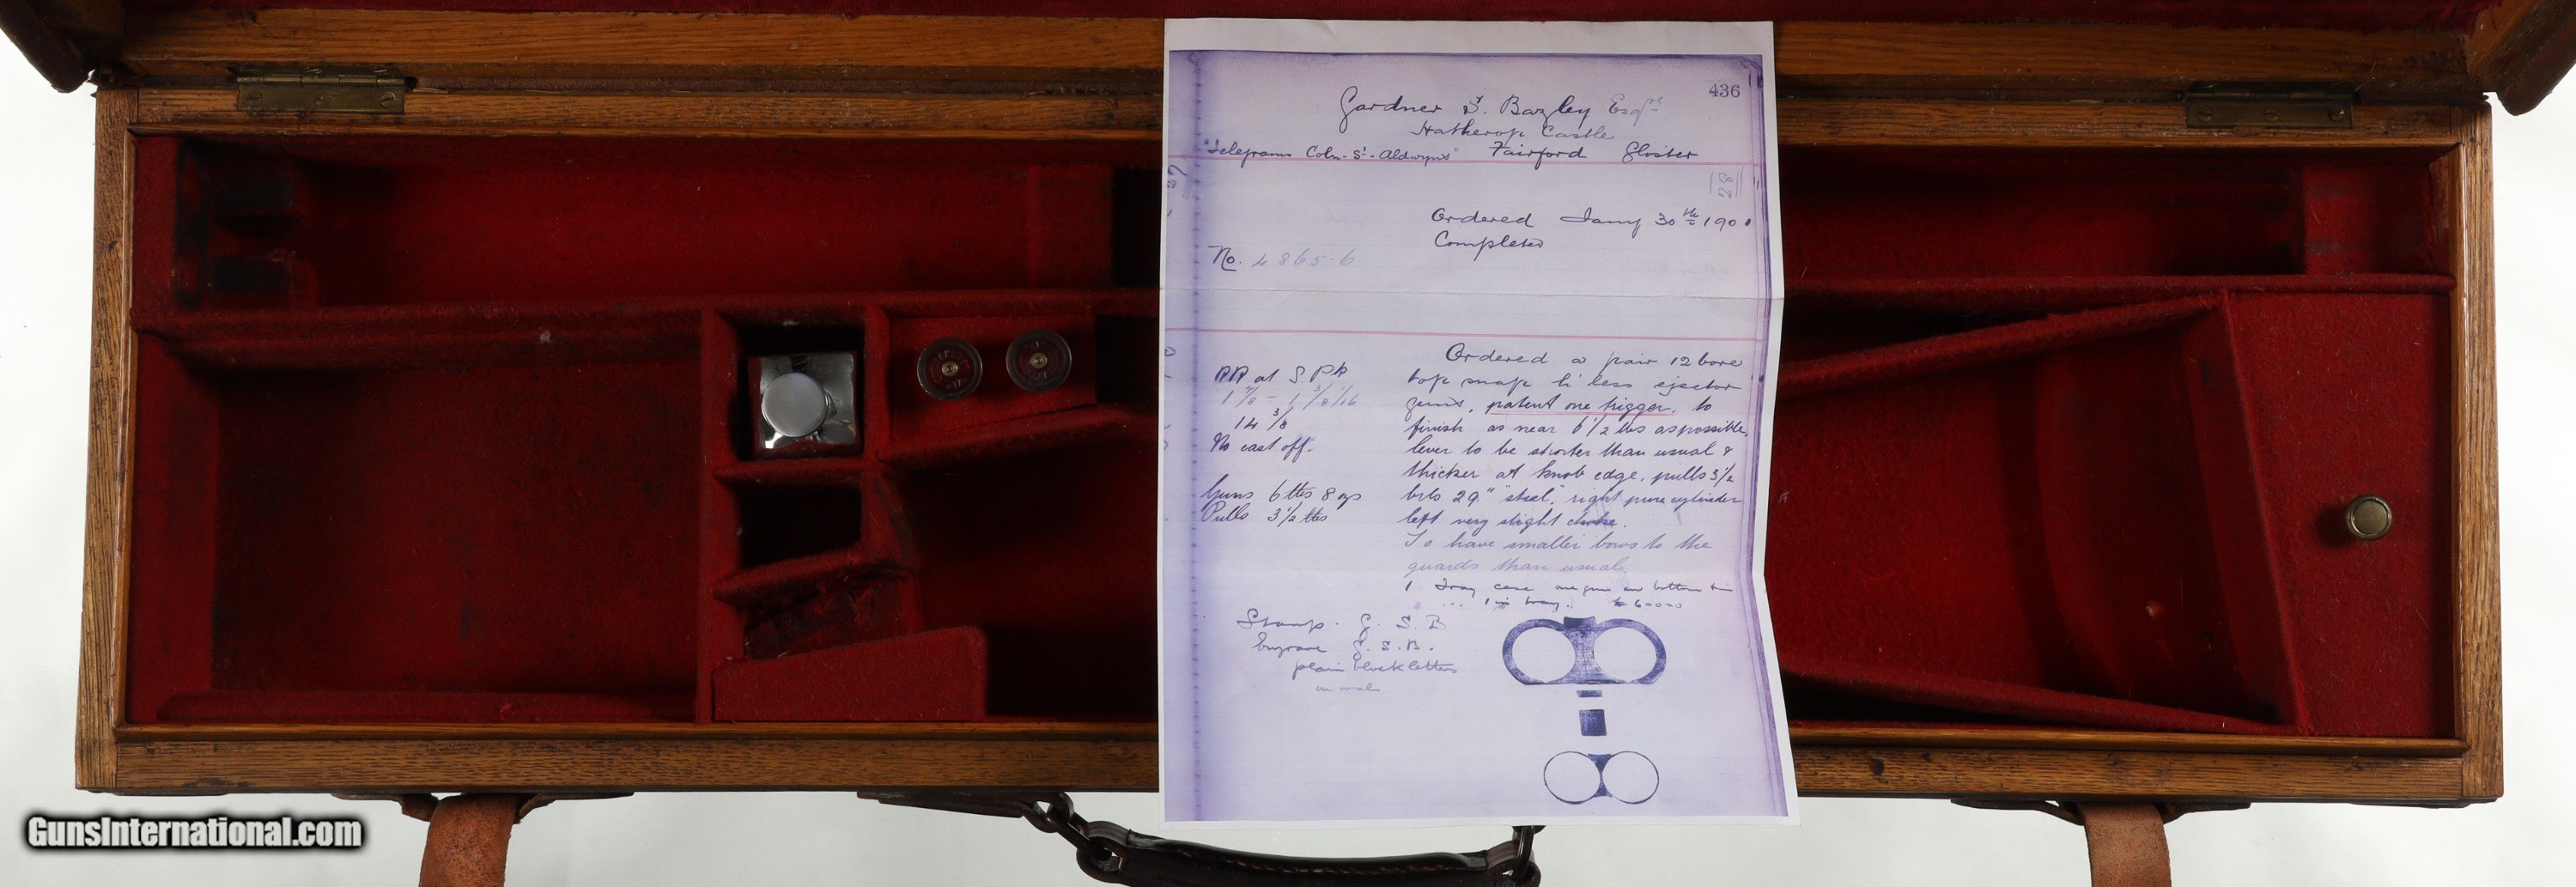 436
Gardner S. Bazley Esqre
Hatherop Castle
"Telegrams Coln-St-Aldwyns" Fairford Gloster
28
Ordered Jany 30th 1900
Completed
No. 4865-6
Ordered a pair 12 bore
top snap h'less ejector
guns, patent one trigger. to
finish as near 6 1/2 lbs as possible.
lever to be shorter than usual &
thicker at knob edge, pulls 3 1/2
brls 29" "steel," right pure cylinder
left very slight choke.
To have smaller bows to the
guards than usual.
1 Tray case one gun in bottom
1 in tray.
14 3/8
No cast off.
Guns 6 lbs 8 ozs
Pulls 3 1/2 lbs
Stamp. G. S. B
Engrave G. S. B.
plain block letters
on ovals
GunsInternational.com